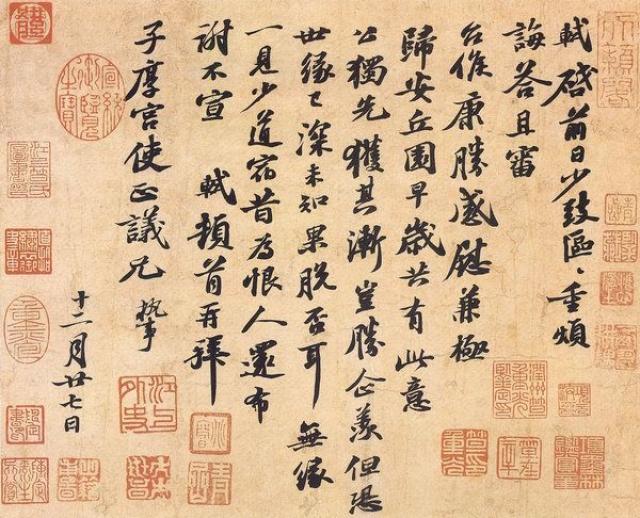 軾啓前日少致區〻重煩
誨答且審
台候康勝感慰兼極
歸安丘園早歲共有此意
公獨先獲其漸豈勝企羨但恐
世緣已深未知果脫否耳無緣
一見少道宿昔為恨人還布
謝不宣 軾頓首再拜
子厚宮使正議兄執事
十二月廿七日
宣統御覽之寶